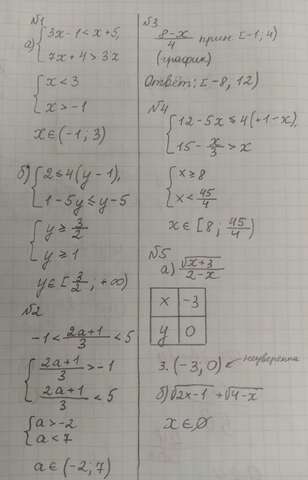 №1
а) { 3x-1 < x+5,
7x+4 > 3x
{ x < 3
x > -1
x ∈ (-1; 3)
б) { 2 ≤ 4(y-1),
1-5y ≤ y-5
{ y ≥ 3/2
y ≥ 1
y ∈ [3/2; +∞)
№2
-1 < (2a+1)/3 < 5
{ (2a+1)/3 > -1
(2a+1)/3 < 5
{ a > -2
a < 7
a ∈ (-2; 7)
№3
(8-x)/4 прин [-1; 4)
(график)
Ответ: [-8, 12)
№4
{ 12-5x ≤ 4(+1-x)
15 - x/3 > x
{ x ≥ 8
x < 45/4
x ∈ [8; 45/4)
№5
а) √(x+3)/(2-x)
x -3
y 0
з. (-3; 0) неуверенна
б) √(2x-1) + √(4-x)
x ∈ ∅